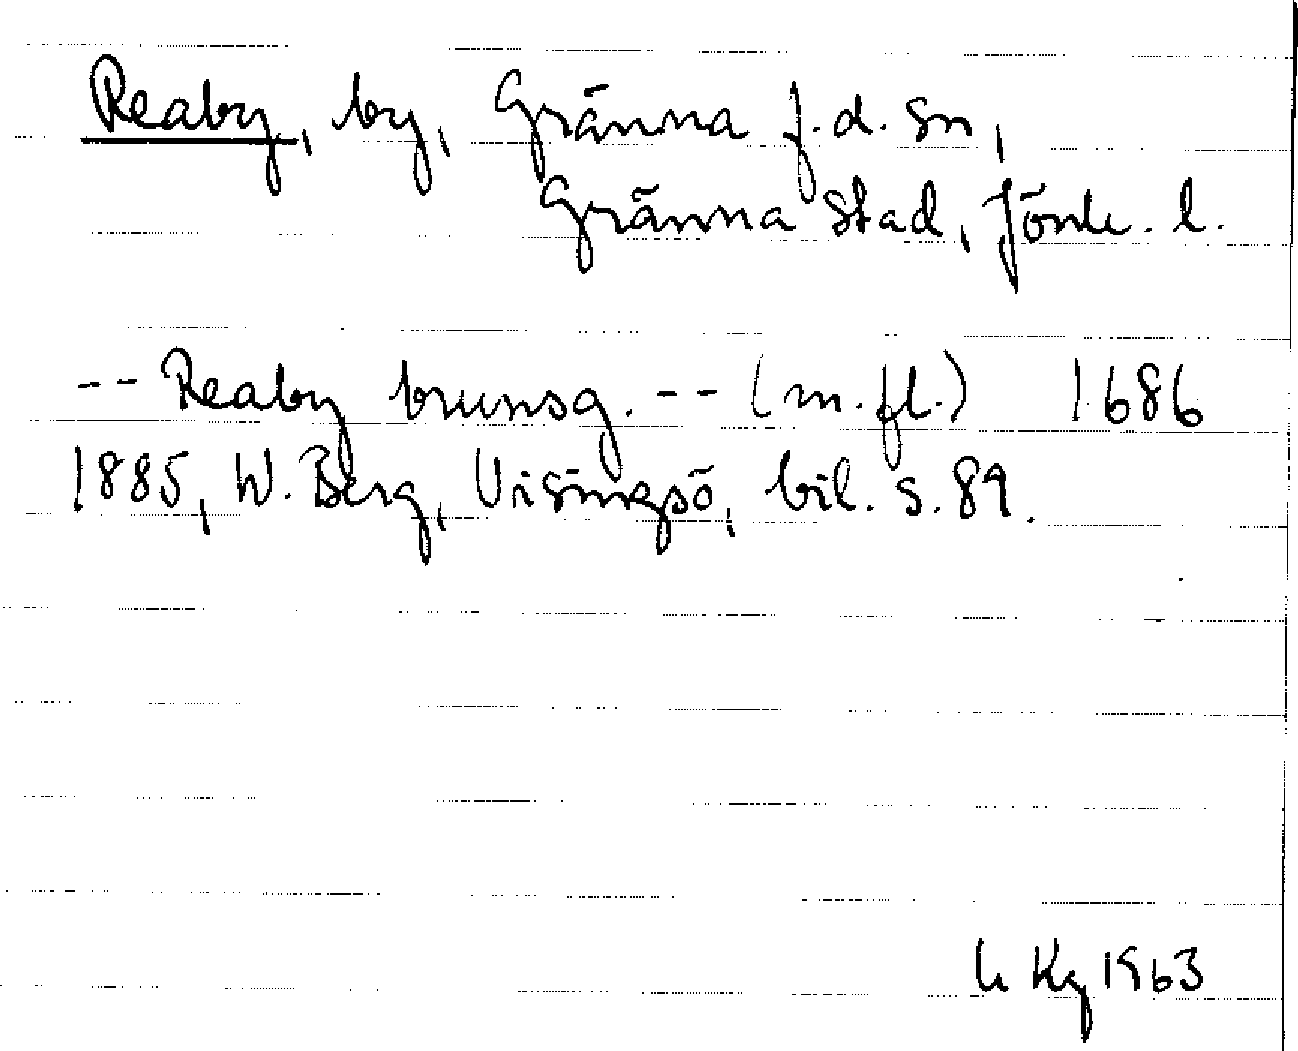 Reaby, by, Gränna f.d. sn,
Gränna stad, Jönk. l.
-- Reaby brunsg. -- (m.fl.) 1686
1885, W. Berg, Visingsö, bil. s. 89.
Kg 1963